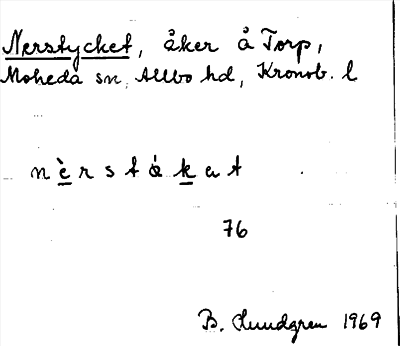 Nerstycket, åker å Torp,
Moheda sn, Allbo hd, Kronob. l
nèrstákat
76
B. Lundgren 1969